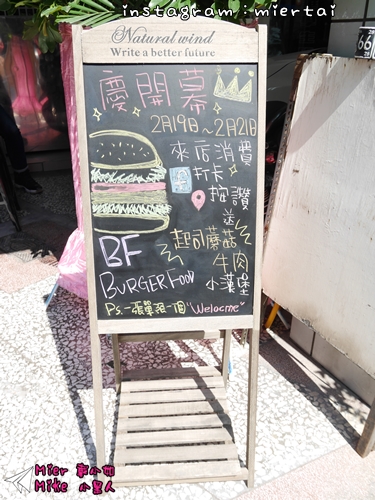 instagram:miertai
Natural wind
Write a better future
慶開幕
2月19日~2月21日
來店消費
打卡
按讚
送
起司蘑菇
牛肉
小漢堡
BF
BURGER FOOD
Ps.一張單組一個"Welcome"
66
Mier
Mike